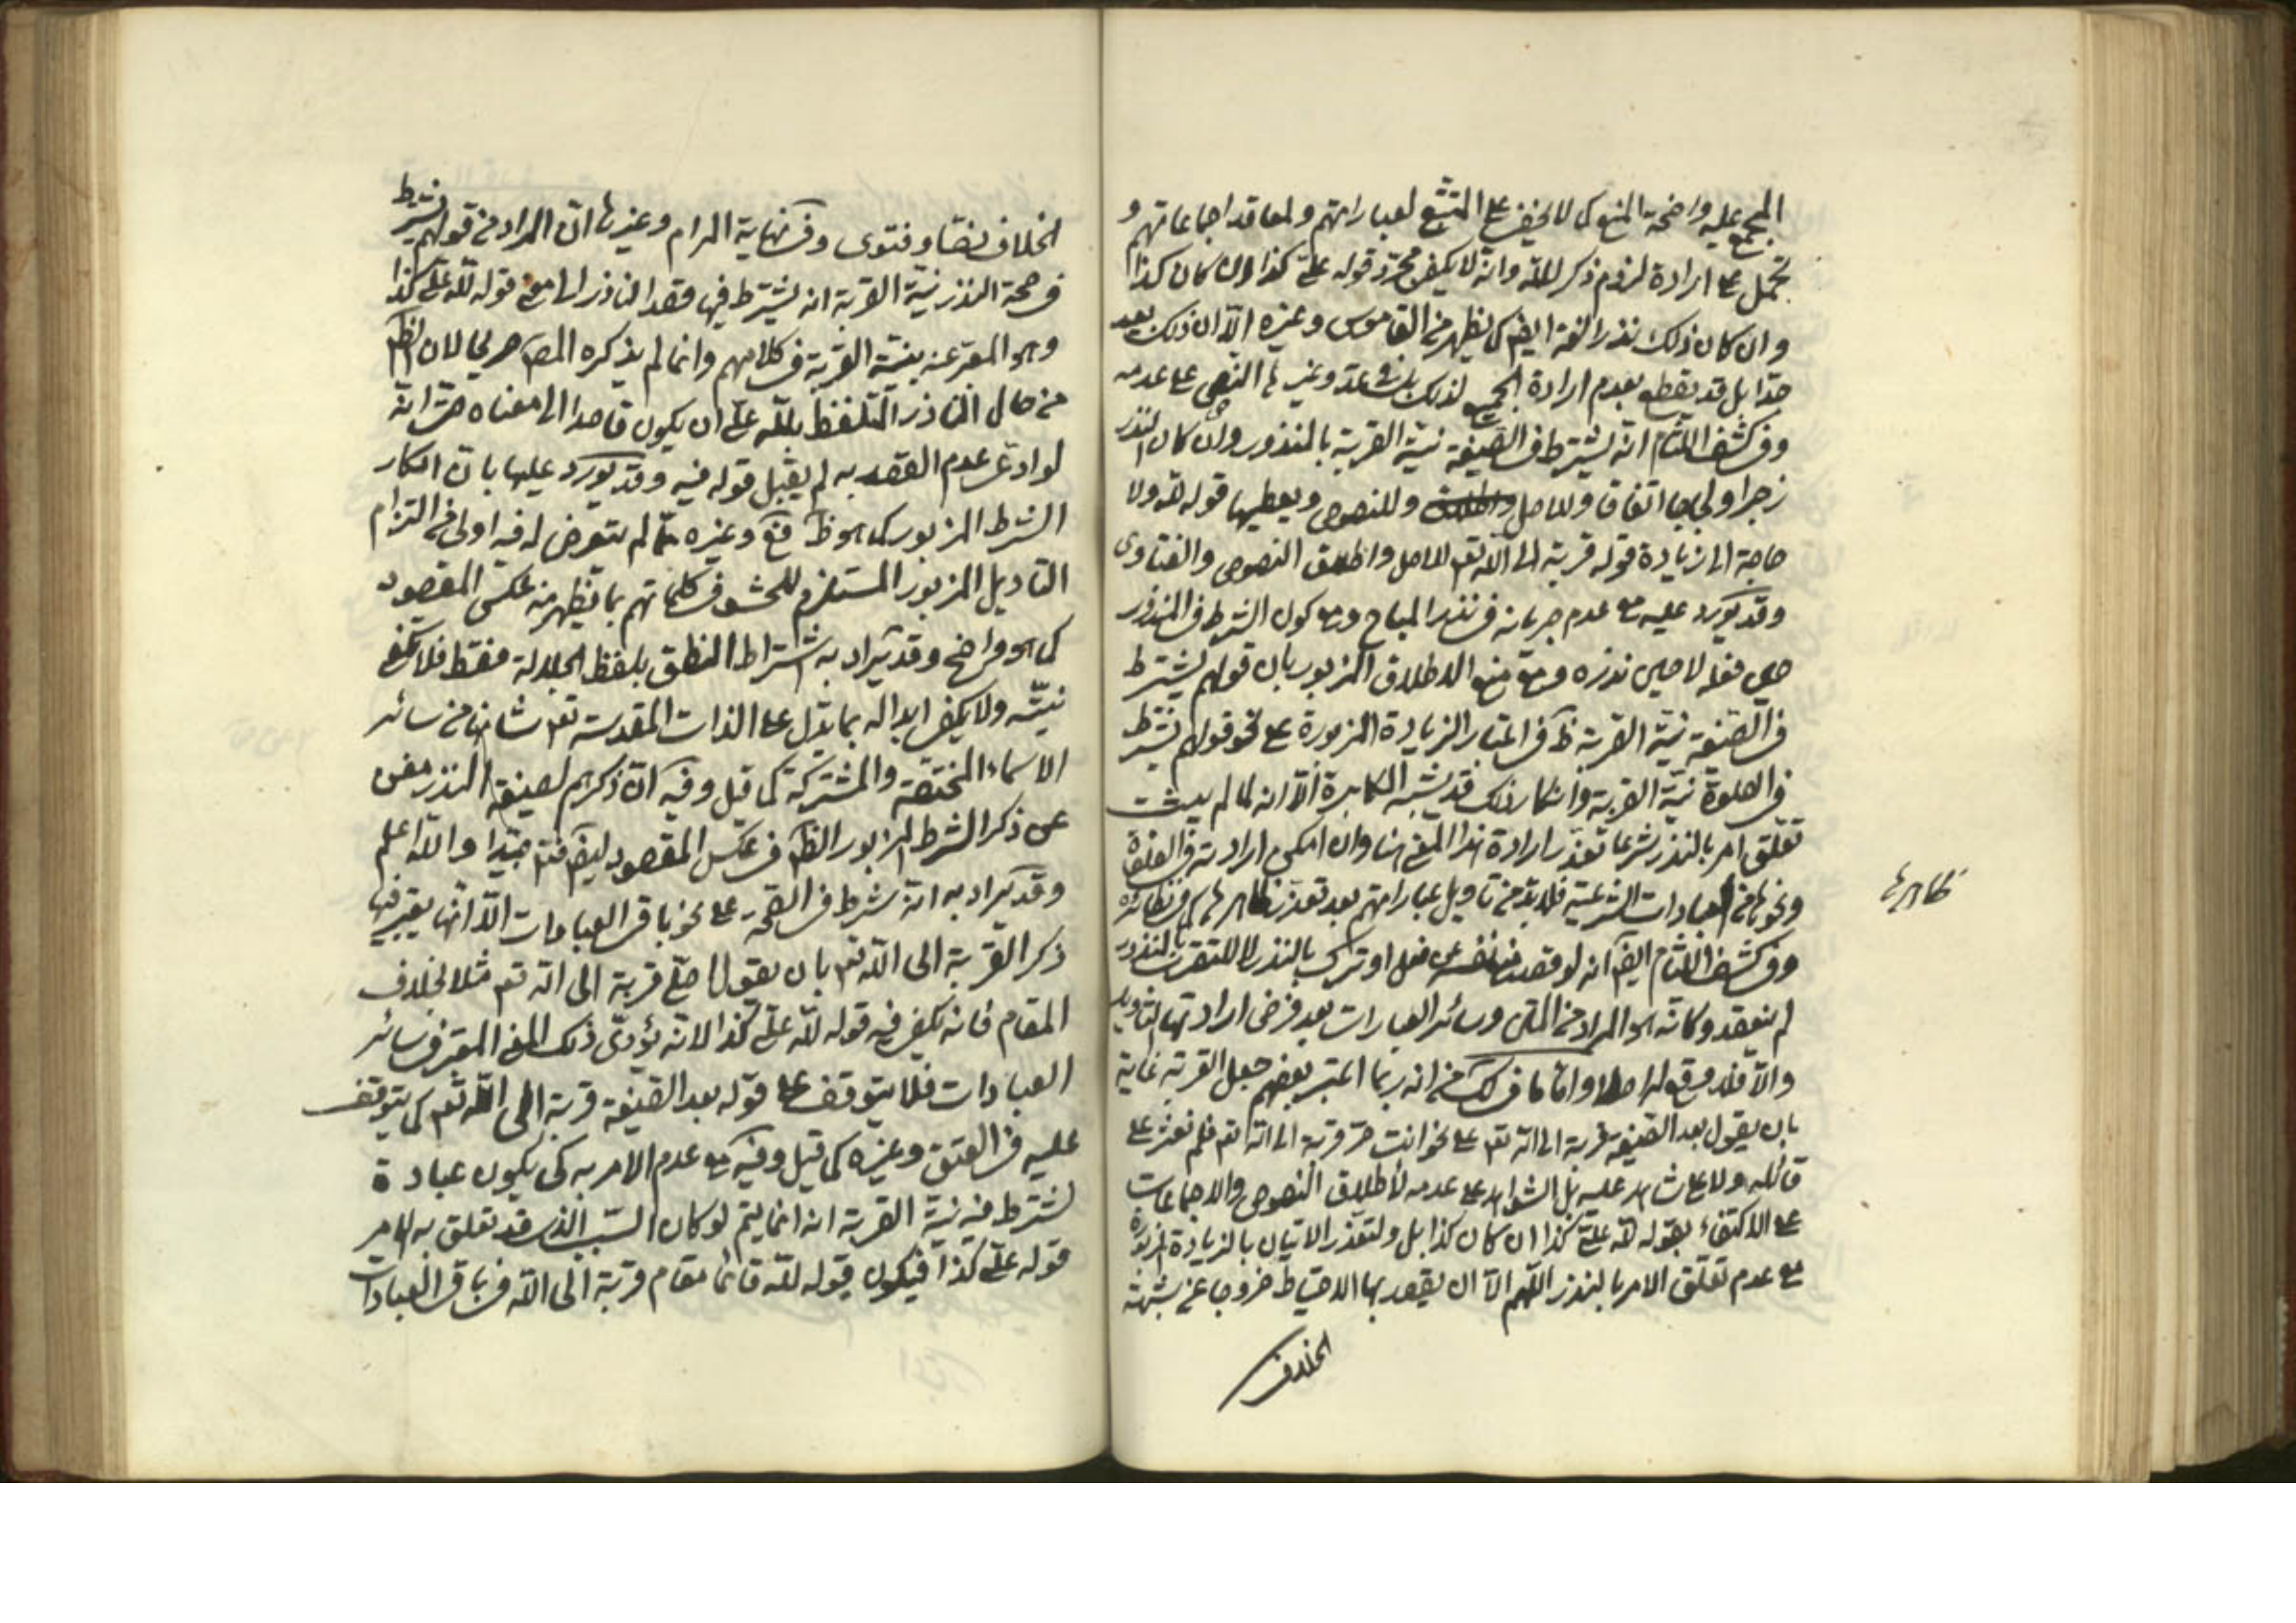 المجمع عليه واضحة المنع كما لا يخفى على المتتبع لعباراتهم ولمعاقد اجماعاتهم و
تحمل على ارادة لزوم ذكر لله وانه لا يكفى مجرد قوله علىّ كذا وان كان كذا
وان كان ذلك نذرا لغة ايضا كما يظهر من القاموس وغيره الّا ان ذلك بعيد
جدا بل قد يقطع بعدم ارادة الجميع لذلك وغيرها النص على عدمه
وفى كشف اللثام انه يشترط فى الصيغة نية القربة بالمنذور وان كان النذر
زجرا او لجاجا اتفاقا وللاصل وللنصوص ويعطيها قوله لله ولا
حاجة الى زيادة قوله قربة الى الله تعم للاصل واطلاق النصوص والفتاوى
وقد يورد عليه مع عدم جريانه فى نذر المباح ومع كون الشرط فى المنذور
حين فعله لا حين نذره ومع منع الاطلاق المزبور بان قولهم يشترط
فى الصيغة نية القربة ظ فى اعتبار الزيادة المزبورة على نحو قولهم يشترط
فى الصلوة نية القربة وانكار ذلك قد يشبه المكابرة الّا انه لما لم يثبت
تعلق امر بالنذر شرعا تعذر ارادة هذا المعنى هنا وان امكن ارادته فى الصلوة
ونحوها من العبادات الشرعية فلا بد من تاويل عباراتهم بعد تعذر ظاهرها كما فى نظائره
ظاهرها
وفى كشف اللثام ايضا انه لو قصد منع نفسه عن فعل او ترك بالنذر لا للتقرب بالنذر
لم ينعقد وكانه هو المراد من المتن وسائر العبارات بعد فرض ارادتها التاويل
والّا فلا وقع له اصلا واما ما فى لك من انه ربما اعتبر بعضهم جعل القربة غاية
بان يقول بعد الصيغة قربة الى الله تعم على نحو انت حر قربة الى الله تعم فلم نعثر على
قائله ولا على شاهد عليه بل الشواهد على عدمه لاطلاق النصوص والاجماعات
على الاكتفاء بقوله لله علىّ كذا ان كان كذا بل ولتعذر الاتيان بالزيادة المزبورة
مع عدم تعلق الامر بالنذر اللهم الّا ان يقصد بها الاحتياط خروجا عن شبهة
الخلاف
الخلاف نصا وفتوى وفى نهاية المرام وغيرها ان المراد من قولهم يشترط
فى صحة النذر نية القربة انه يشترط فيها قصد الناذر الى معنى قوله لله علىّ كذا
وهو المعبر عنه بنية القربة فى كلامهم وانما لم يذكره المص صريحا لان الظم
من حال الناذر المتلفظ بلله علىّ ان يكون قاصدا الى معناه حتى انه
لو ادعى عدم القصد به لم يقبل قوله فيه وقد يورد عليها بان انكار
الشرط المزبور كما هو ظ فع وغيره ممّا لم يتعرض له فيه اولى من التزام
التاويل المزبور المستلزم للحشو فى كلماتهم بما يظهر منه عكس المقصود
كما هو واضح وقد يراد به اشتراط النطق بلفظ الجلالة فقط فلا تكفى
نيته ولا يكفى ابداله بما يدل على الذات المقدسة تعم شانها من سائر
الاسماء المختصة والمشتركة كما قيل وفيه ان ذكرهم لصيغة النذر مغن
عن ذكر الشرط المزبور الظم فى عكس المقصود ايضا فتم جيدا والله اعلم
وقد يراد به انه شرط فى الصحة على نحو باقى العبادات الّا انها يعتبر فيها
ذكر القربة الى الله تعم بان يقول اصلى قربة الى الله تعم مثلا بخلاف
المقام فانه يكفى فيه قوله لله علىّ كذا لانه يؤدى ذلك المعنى المعتبر فى سائر
العبادات فلا يتوقف على قوله بعد الصيغة قربة الى الله تعم كما يتوقف
عليه فى العتق وغيره كما قيل وفيه مع عدم الامر به كى يكون عبادة
تشترط فيه نية القربة انه انما يتم لو كان السبب الذى قد تعلق به الامر
قوله علىّ كذا فيكون قوله لله قائما مقام قربة الى الله فى باقى العبادات